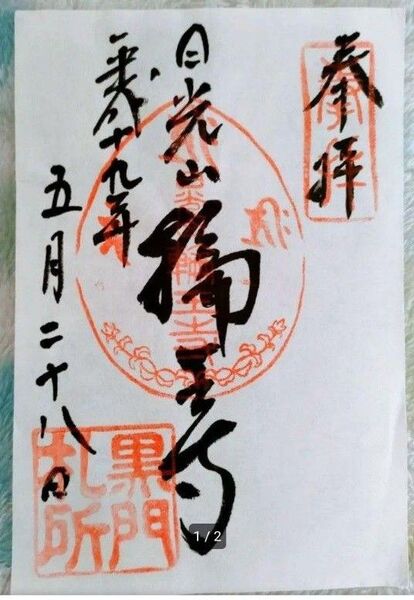 奉拝
日光山
輪王寺
平成十九年
五月二十八日
黒門
札所
1/2